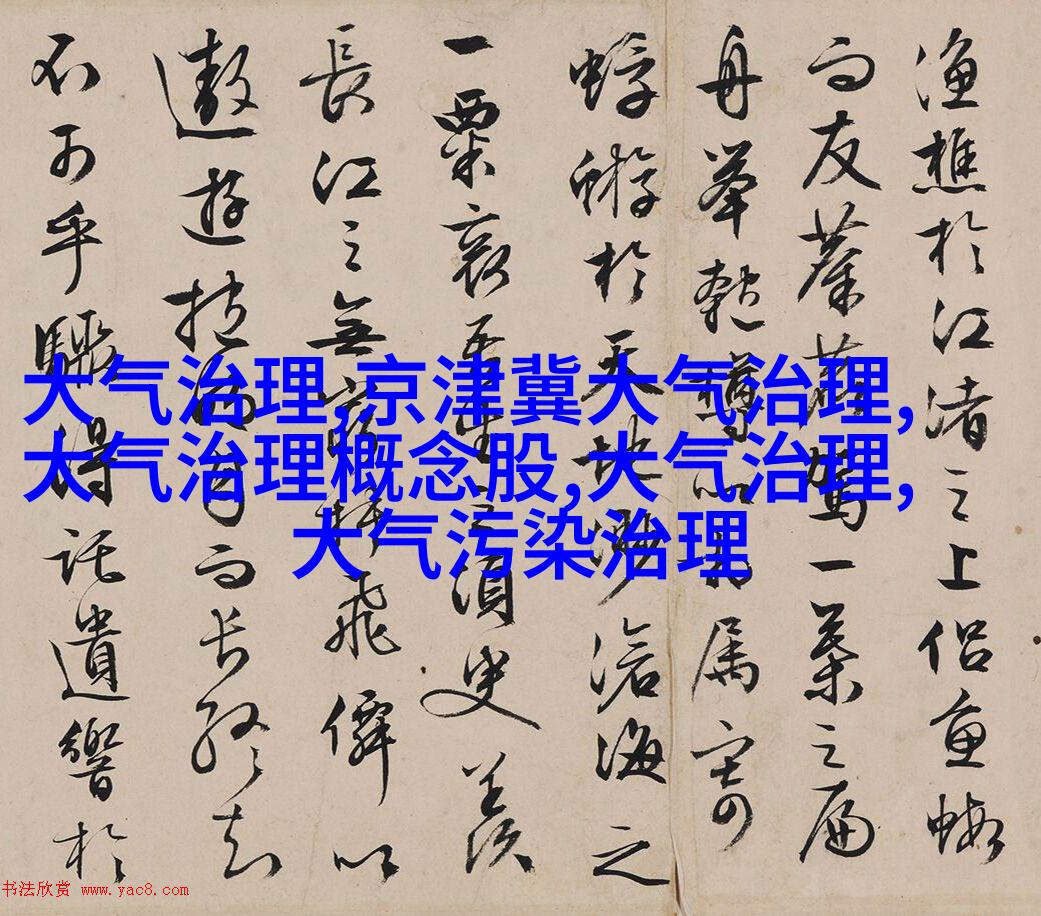 渔樵於江渚之上侣魚蝦
而友麋鹿駕一葉之扁
舟舉匏樽以相属寄
蜉蝣於天地渺滄海之
一粟哀吾生之須臾羡
長江之無窮挾飛僊以
遨遊抱明月而長終知
不可乎驟得託遺響於
大气治理,京津冀大气治理,
大气治理概念股,大气治理,
大气污染治理
书法欣赏 www.yac8.com